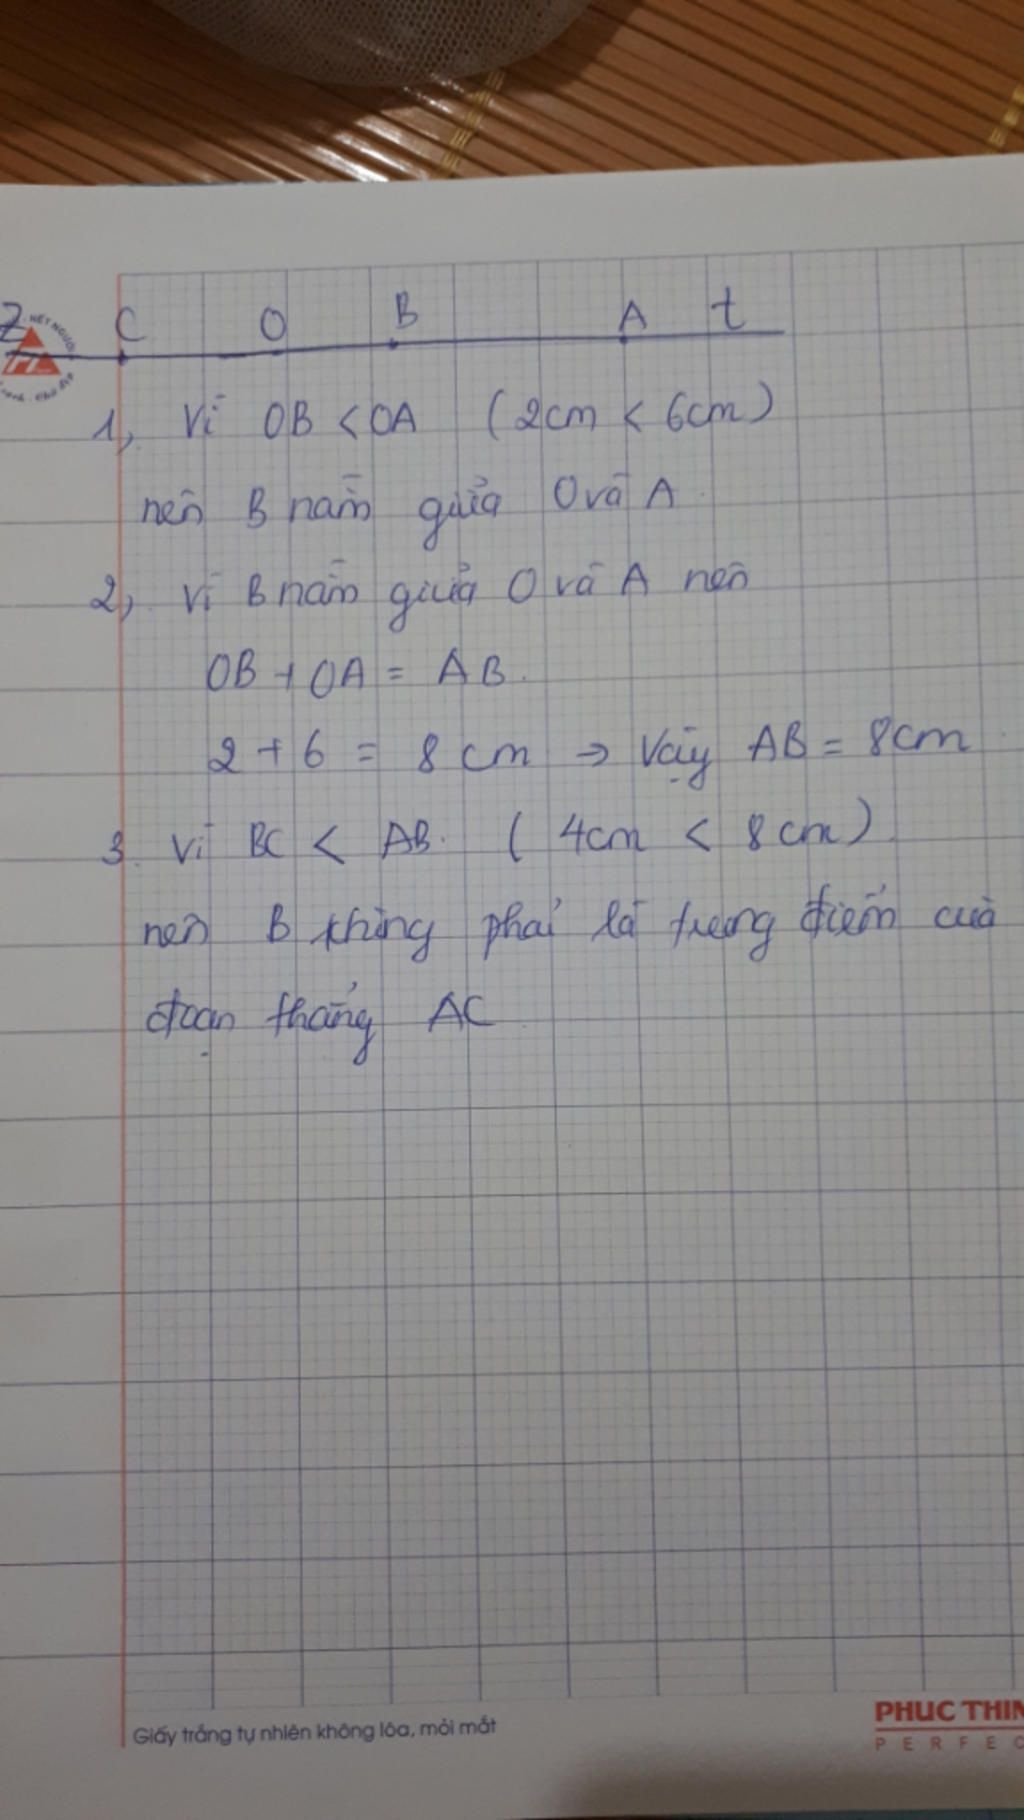 Z C O B A t
1, Vì OB < OA (2cm < 6cm)
nên B nằm giữa O và A.
2, Vì B nằm giữa O và A nên
OB + OA = AB.
2 + 6 = 8 cm → Vậy AB = 8cm
3. Vì BC < AB. ( 4cm < 8cm)
nên B không phải là trung điểm của
đoạn thẳng AC
Giấy trắng tự nhiên không lóa, mỏi mắt
PHUC THIN
PERFEC